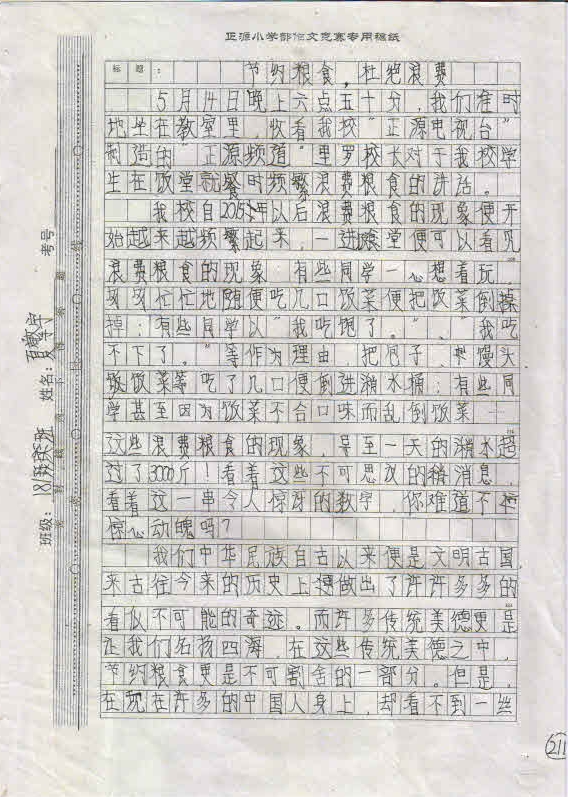 正源小学部作文竞赛专用稿纸
标题: 节约粮食,杜绝浪费
5月14日晚上六点五十分,我们准时
地坐在教室里,收看我校“正源电视台”
制造的“正源频道”里罗校长对于我校学
生在饭堂就餐时频繁浪费粮食的讲话。
我校自2015年以后浪费粮食的现象便开
始越来越频繁起来,一进食堂便可以看见
浪费粮食的现象 有些同学一心想着玩,
匆匆忙忙地随便吃几口饭菜便把饭菜倒掉
掉;有些同学以“我吃饱了。”、“我吃
不下了。”等作为理由 把包子、馒头
饭菜等吃了几口便倒进潲水桶;有些同
学甚至因为饭菜不合口味而乱倒饭菜……
这些浪费粮食的现象,导至一天的潲水超
过了3000斤!看着这些不可思议的消息,
看着这一串令人惊讶的数字,你难道不
惊心动魄吗?
我们中华民族自古以来便是文明古国,
来古往今来的历史上 做出了许许多多的
看似不可能的奇迹。而许多传统美德更是
让我们名扬四海,在这些传统美德之中,
节约粮食更是不可割舍的一部分。但是,
在现在许多的中国人身上,却看不到一丝
考号
姓名:
班级:
211